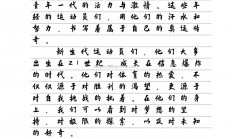 青年一代的活力与激情。这些年
轻的运动员们，用他们的汗水和努
力，书写着属于自己的奥运传
奇。
新生代运动员们，他们大多
出生在21世纪，成长在信息爆炸
的时代。他们对体育的热爱，不
仅仅源于对胜利的渴望，更源于
对自我挑战的执着。在他们的身
上，我们可以看到对梦想的坚
持，对极限的探索，以及对未知
的好奇。